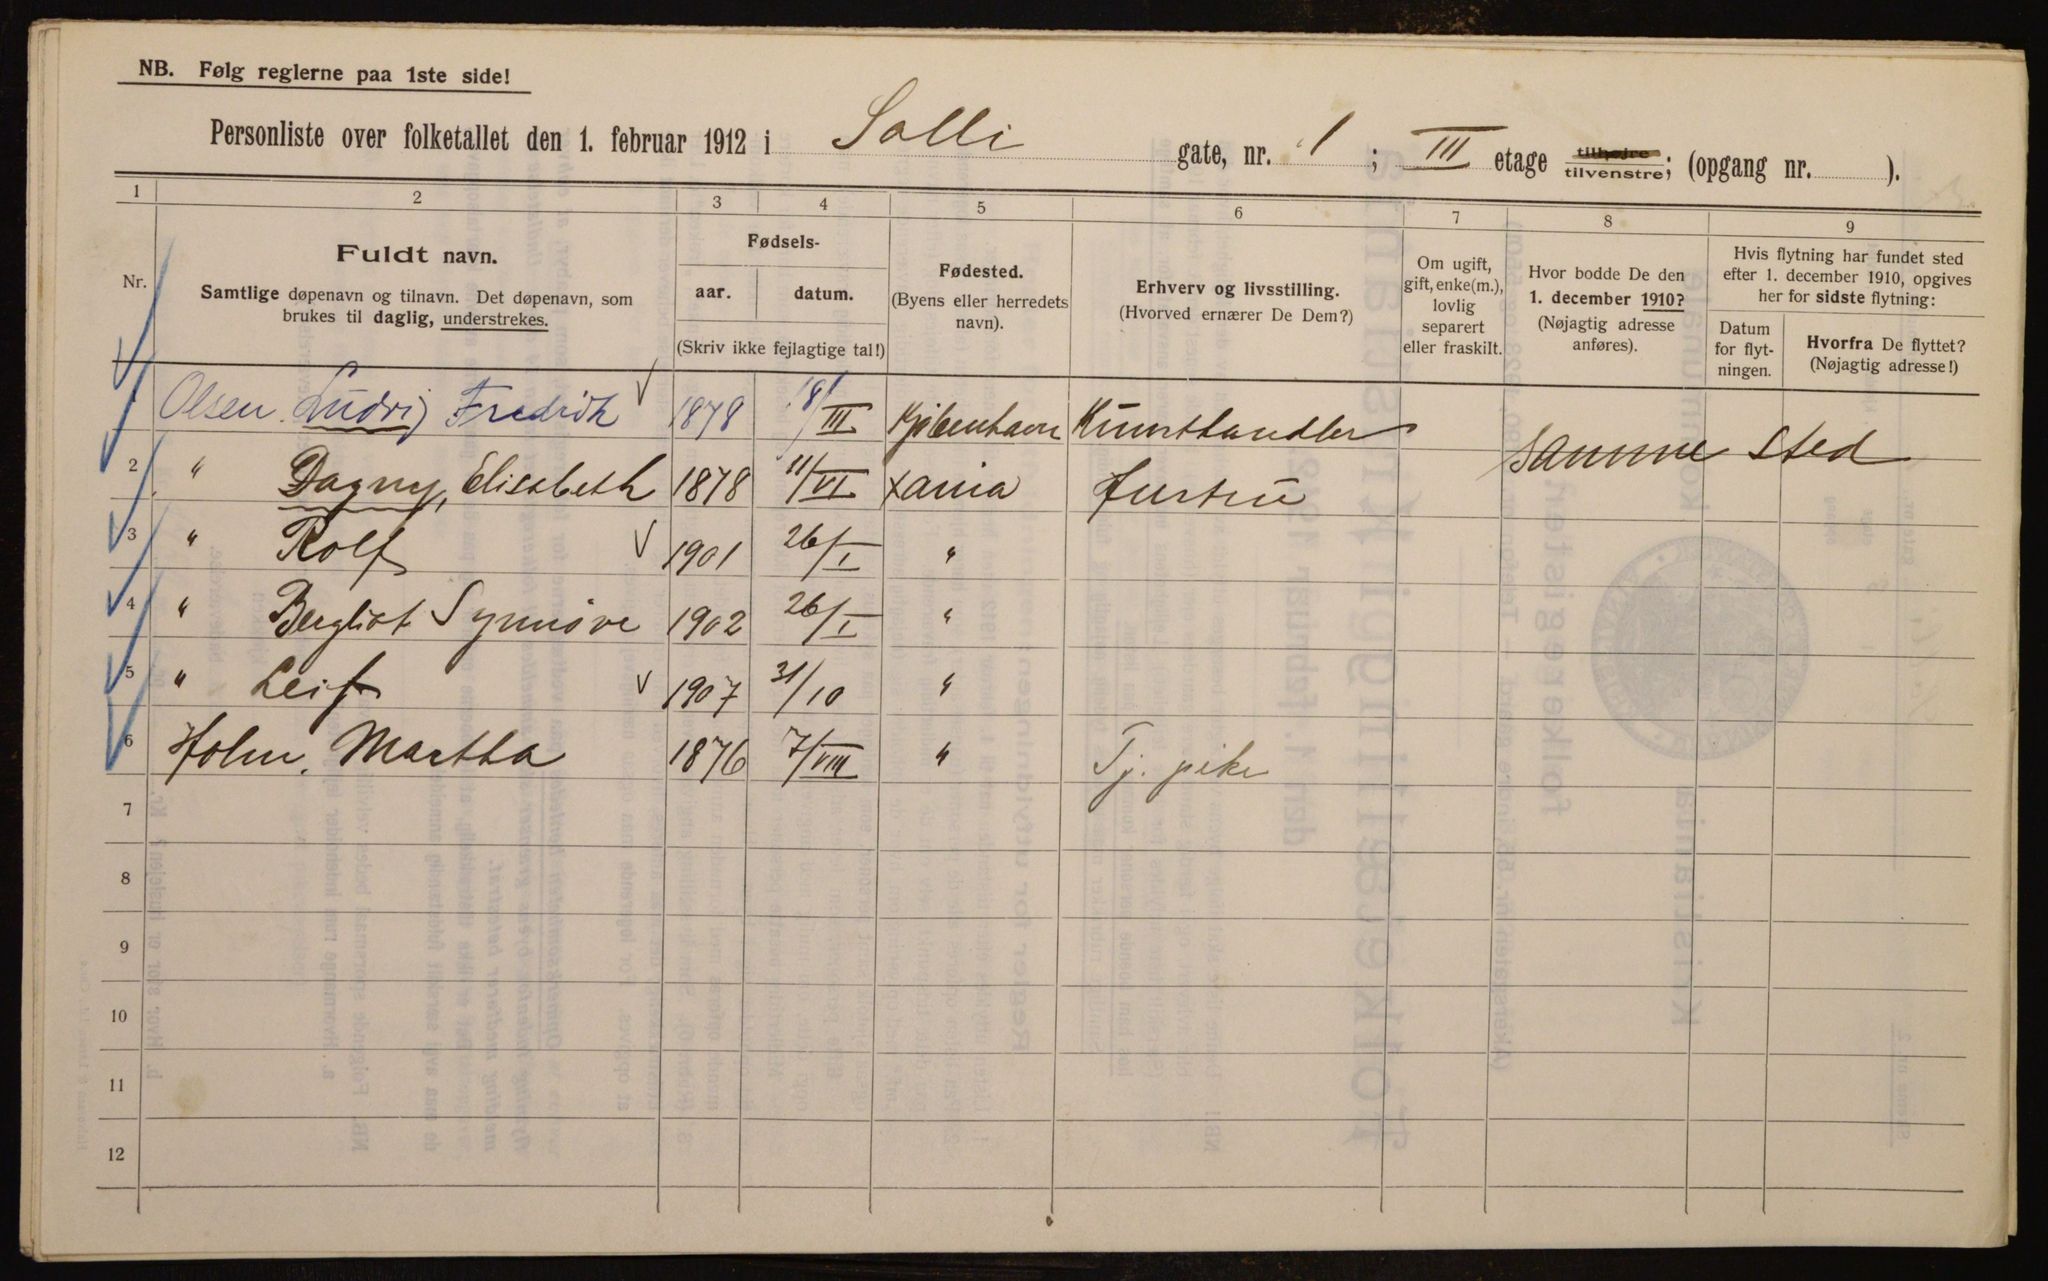 NB. Følg reglerne paa 1ste side!
Personliste over folketallet den 1. februar 1912 i Solli gate, nr. 1; III etage tilhøjre tilvenstre; (opgang nr. ).
1 2 3 4 5 6 7 8 9
Nr.
Fuldt navn.
Samtlige døpenavn og tilnavn. Det døpenavn, som
brukes til daglig, understrekes.
Fødsels-
aar. datum.
(Skriv ikke fejlagtige tal!)
Fødested.
(Byens eller herredets
navn).
Erhverv og livsstilling.
(Hvorved ernærer De Dem?)
Om ugift,
gift, enke(m.),
lovlig
separert
eller fraskilt.
Hvor bodde De den
1. december 1910?
(Nøjagtig adresse
anføres).
Hvis flytning har fundet sted
efter 1. december 1910, opgives
her for sidste flytning:
Datum
for flyt-
ningen.
Hvorfra De flyttet?
(Nøjagtig adresse!)
1 Olsen Ludvig Fredrik 1878 18/III Kjøbenhavn Kunsthandler samme sted
2 " Dagny, Elisabeth 1878 11/VI Xania Hustru
3 " Rolf 1901 26/I "
4 " Bergliot Synnöve 1902 26/I "
5 " Leif 1907 31/10 "
6 Holm, Martha 1876 7/VIII " Tj. pike
7
8
9
10
11
12